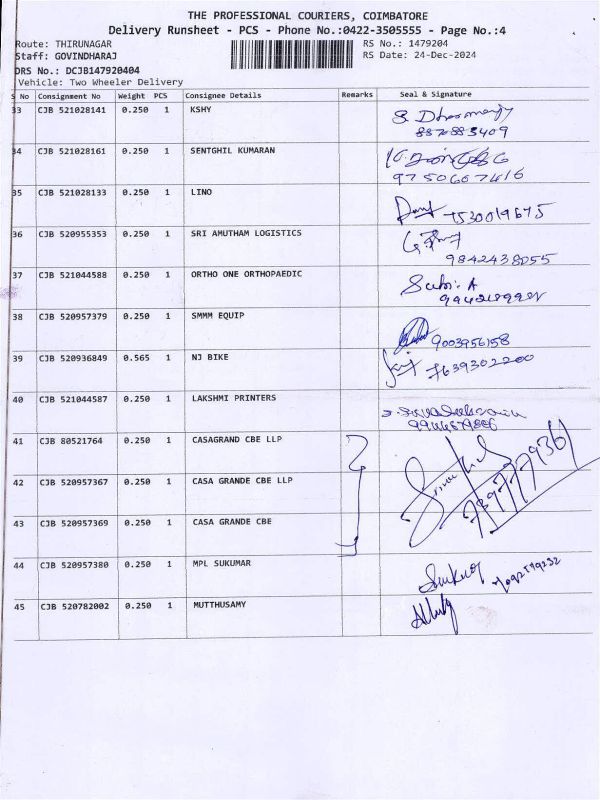 THE PROFESSIONAL COURIERS, COIMBATORE
Delivery Runsheet - PCS - Phone No.:0422-3505555 - Page No.:4
Route: THIRUNAGAR RS No.: 1479204
Staff: GOVINDHARAJ RS Date: 24-Dec-2024
DRS No.: DCJB147920404
Vehicle: Two Wheeler Delivery
S No Consignment No Weight PCS Consignee Details Remarks Seal & Signature
33 CJB 521028141 0.250 1 KSHY
34 CJB 521028161 0.250 1 SENTGHIL KUMARAN
9750667416
35 CJB 521028133 0.250 1 LINO
7530019675
36 CJB 520955353 0.250 1 SRI AMUTHAM LOGISTICS
9842438055
37 CJB 521044588 0.250 1 ORTHO ONE ORTHOPAEDIC
38 CJB 520957379 0.250 1 SMMM EQUIP
9003956158
39 CJB 520936849 0.565 1 NJ BIKE
7639302200
40 CJB 521044587 0.250 1 LAKSHMI PRINTERS
41 CJB 80521764 0.250 1 CASAGRAND CBE LLP
42 CJB 520957367 0.250 1 CASA GRANDE CBE LLP
43 CJB 520957369 0.250 1 CASA GRANDE CBE
44 CJB 520957380 0.250 1 MPL SUKUMAR
45 CJB 520782002 0.250 1 MUTTHUSAMY